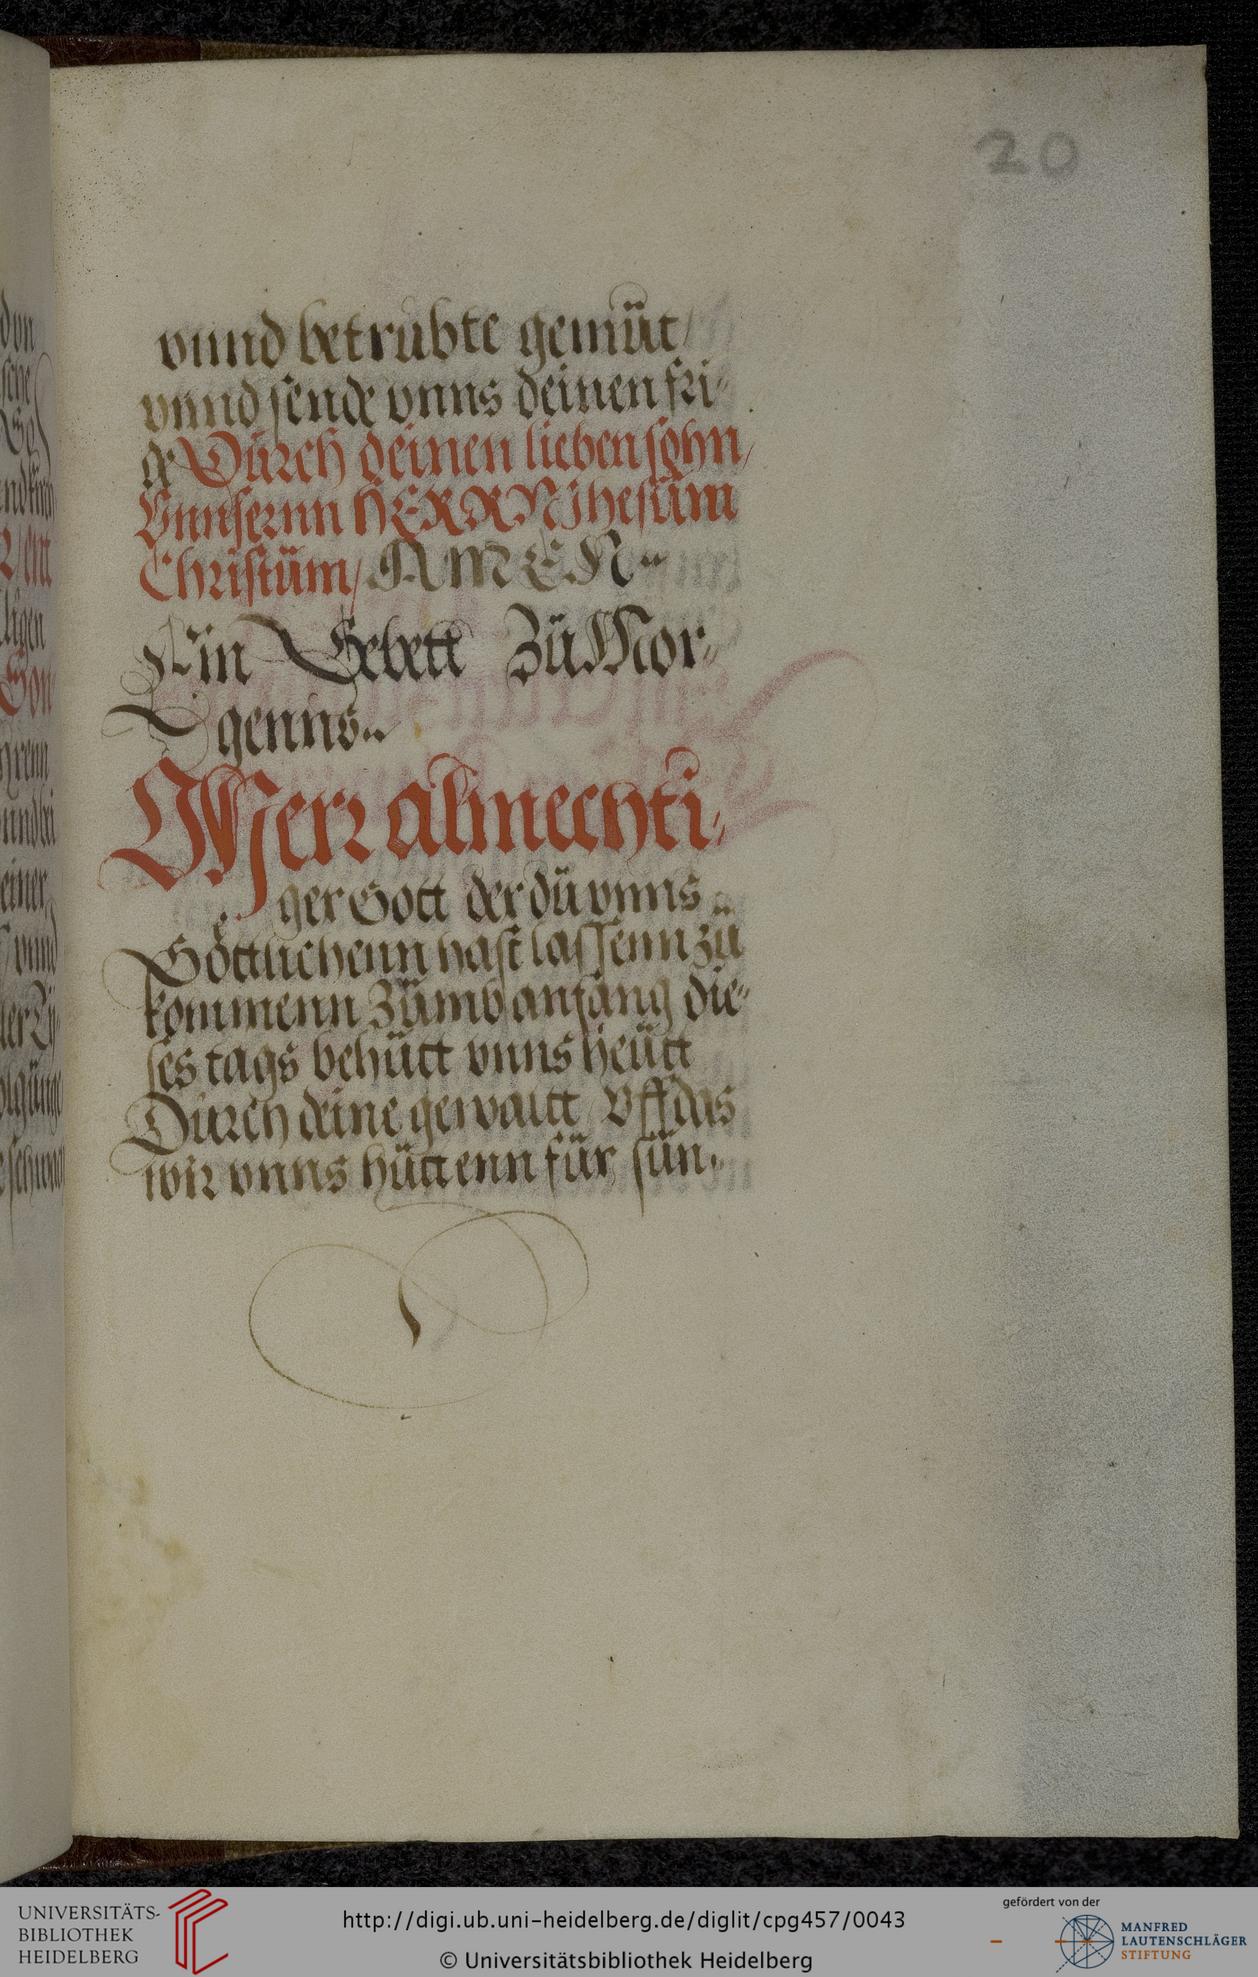 20
vnnd betrubte gemüt/
vnnd sende vnns deinen fri-
de Dürch deinen lieben sohn/
Vnnsernn HERRN Jhesüm
Christüm/ AMEN
Ein Gebett Zü Mor-
genns
O Herr almechti-
ger Gott der dü vnns
Göttlichenn hast lassenn zü
kommenn Zümb anfang die-
ses tags behütt vnns heütt
Dürch deine gewaltt Vff das
wir vnns hüttenn für sün-
UNIVERSITÄTS-
BIBLIOTHEK
HEIDELBERG
http://digi.ub.uni-heidelberg.de/diglit/cpg457/0043
© Universitätsbibliothek Heidelberg
gefördert von der
MANFRED
LAUTENSCHLÄGER
STIFTUNG